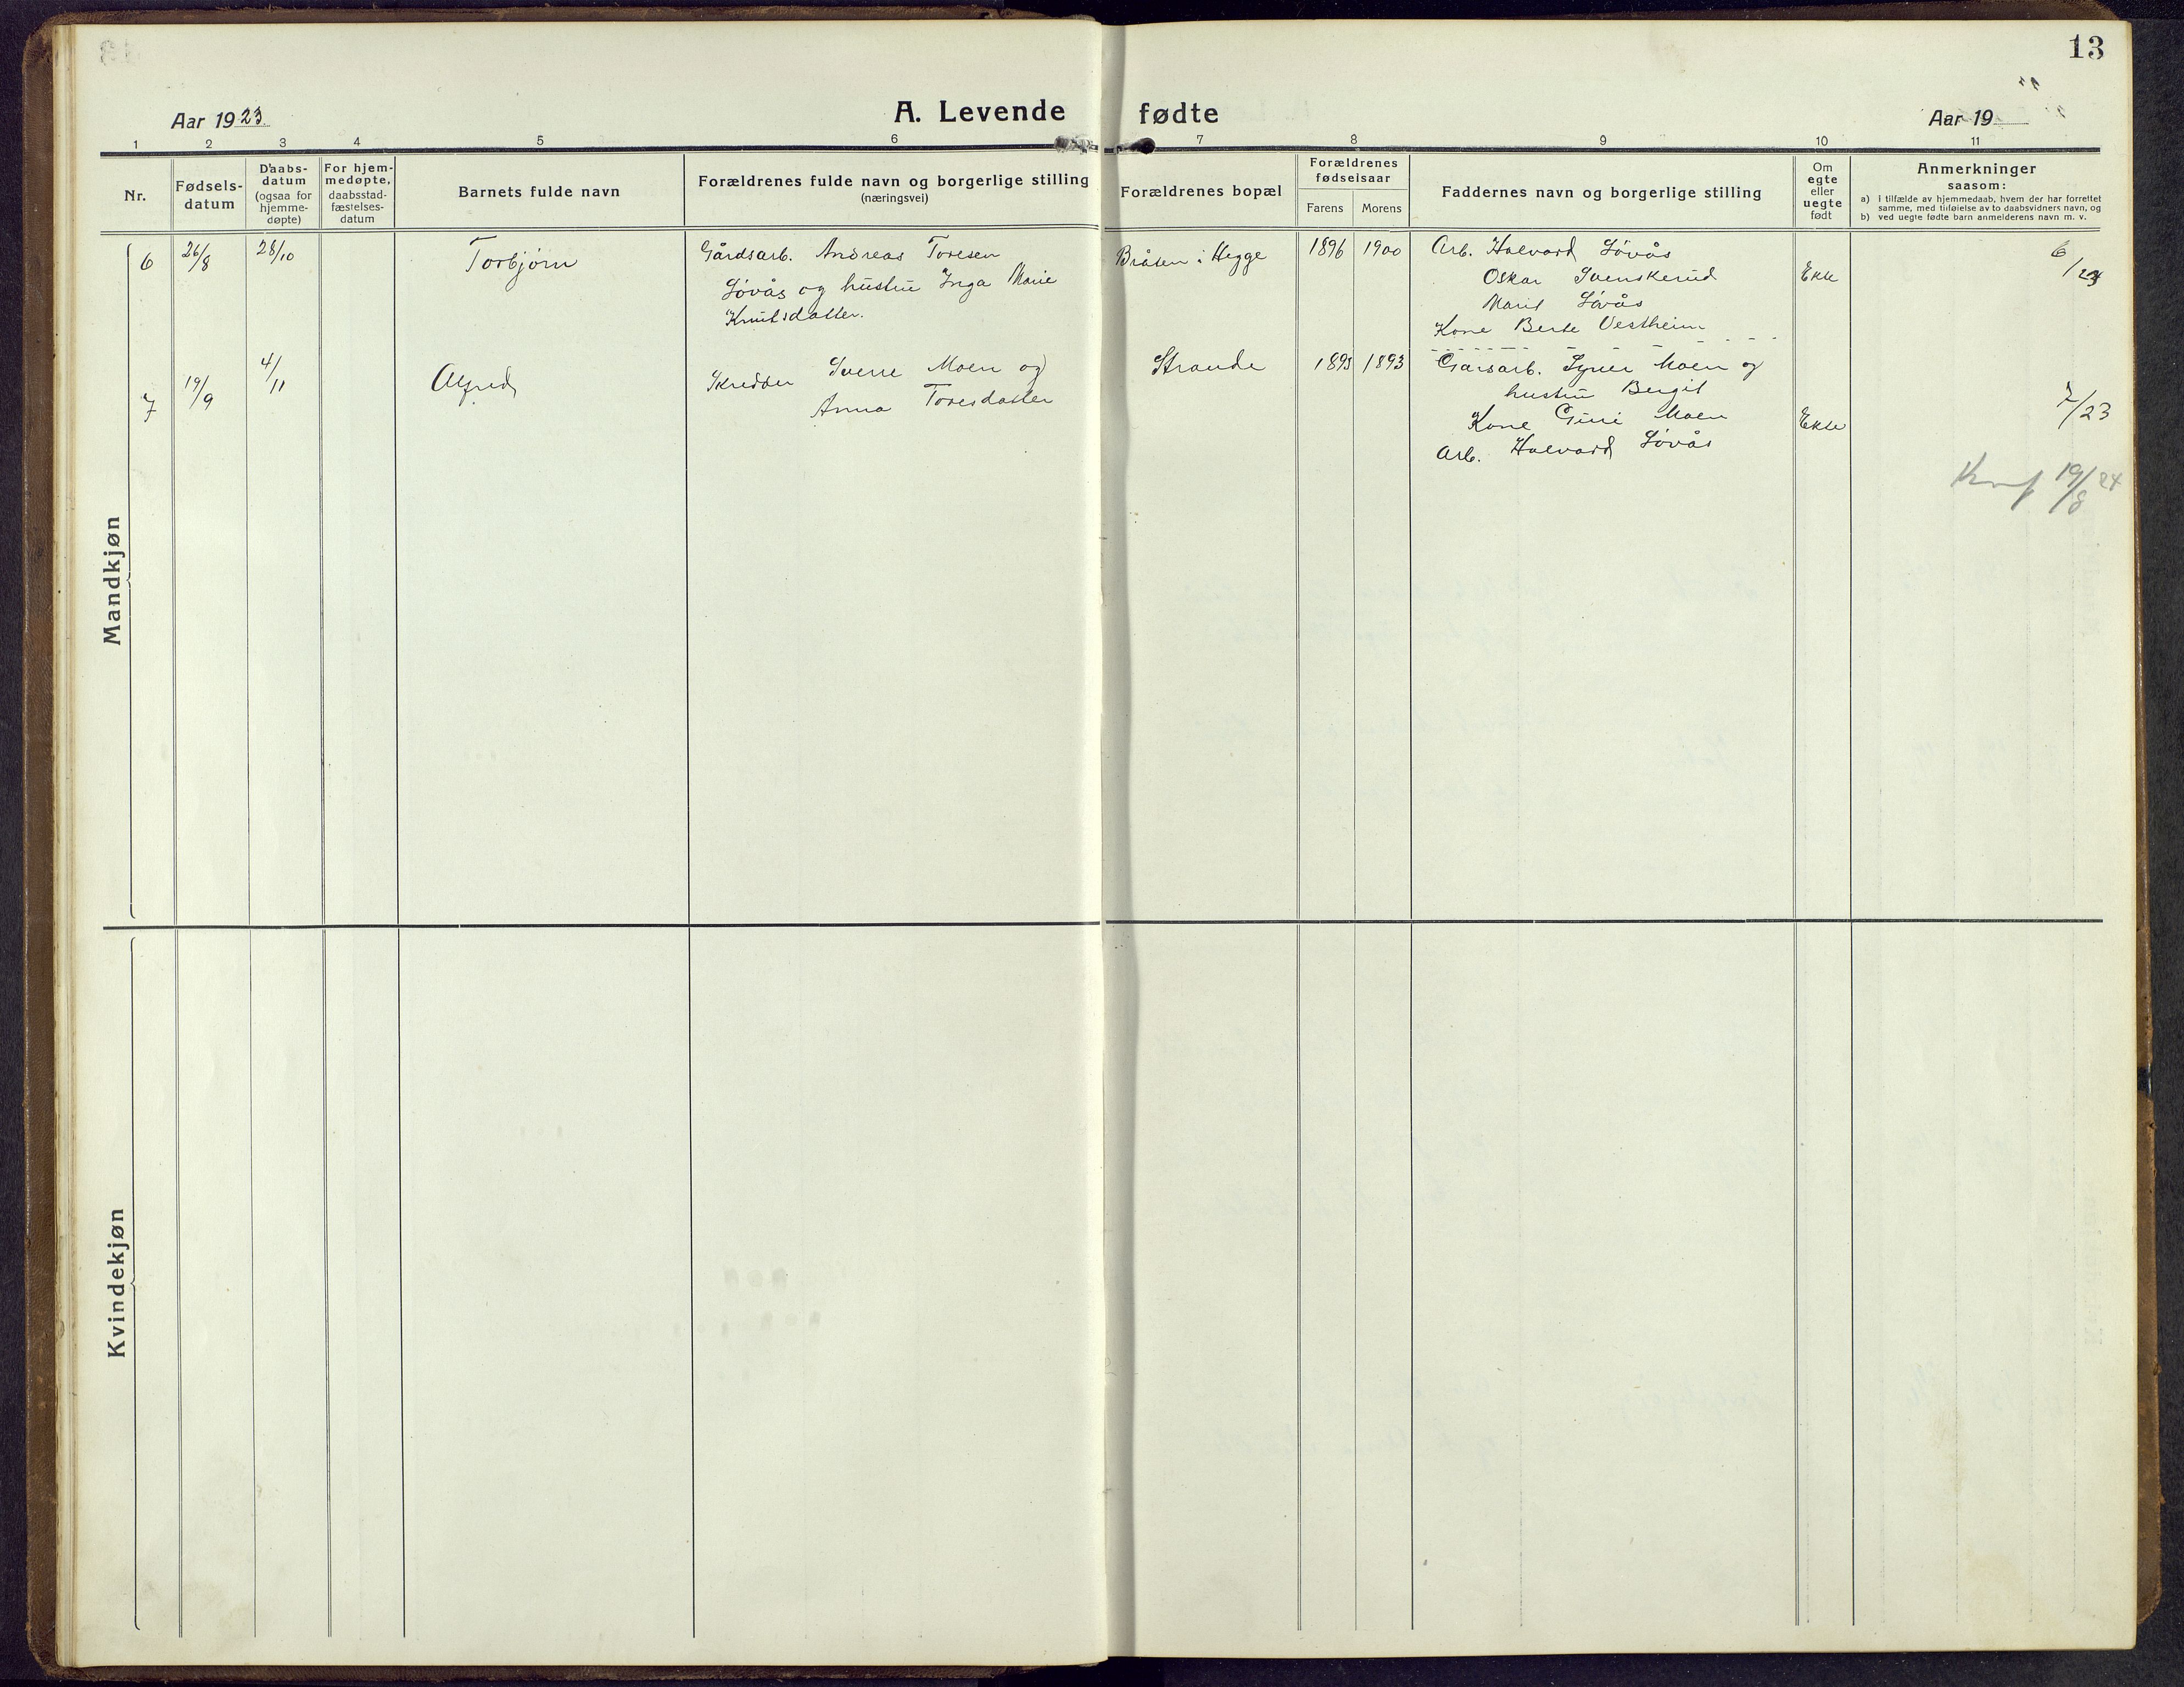 13
Aar 1923.
A. Levende fødte
Aar 19
1 2 3 4 5 6 7 8 9 10 11
Nr.
Fødsels-
datum
Daabs-
datum
(ogsaa for
hjemme-
døpte)
For hjem-
medøpte,
daabsstad-
fæstelses-
datum
Barnets fulde navn
Forældrenes fulde navn og borgerlige stilling
(næringsvei)
Forældrenes bopæl
Forældrenes
fødselsaar
Farens
Morens
Faddernes navn og borgerlige stilling
Om
egte
eller
uegte
født
Anmerkninger
saasom:
a) i tilfælde av hjemmedaab, hvem der har forrettet
samme, med tilføielse av to daabsvidners navn, og
b) ved uegte fødte barn anmelderens navn m. v.
Mandkjøn
6
26/8
28/10
Torbjørn
Gårdsarb. Andreas Toresen
Løvås og hustru Inga Marie
Knutsdatter.
Bråten i Hegge
1896
1900
Arb. Halvard Løvås
Oskar Svenskerud
Marit Løvås
Kone Berte Vestheim
Ekte
6/23
7
19/9
4/11
Alfred
Skredder Sverre Moen og
Anna Toresdatter
Strande
1895
1893
Garsarb. Syver Moen og
hustru Bergit
Kone Guri Moen
Arb. Halvard Løvås
Ekte
7/23
19/8 24
Kvindekjøn